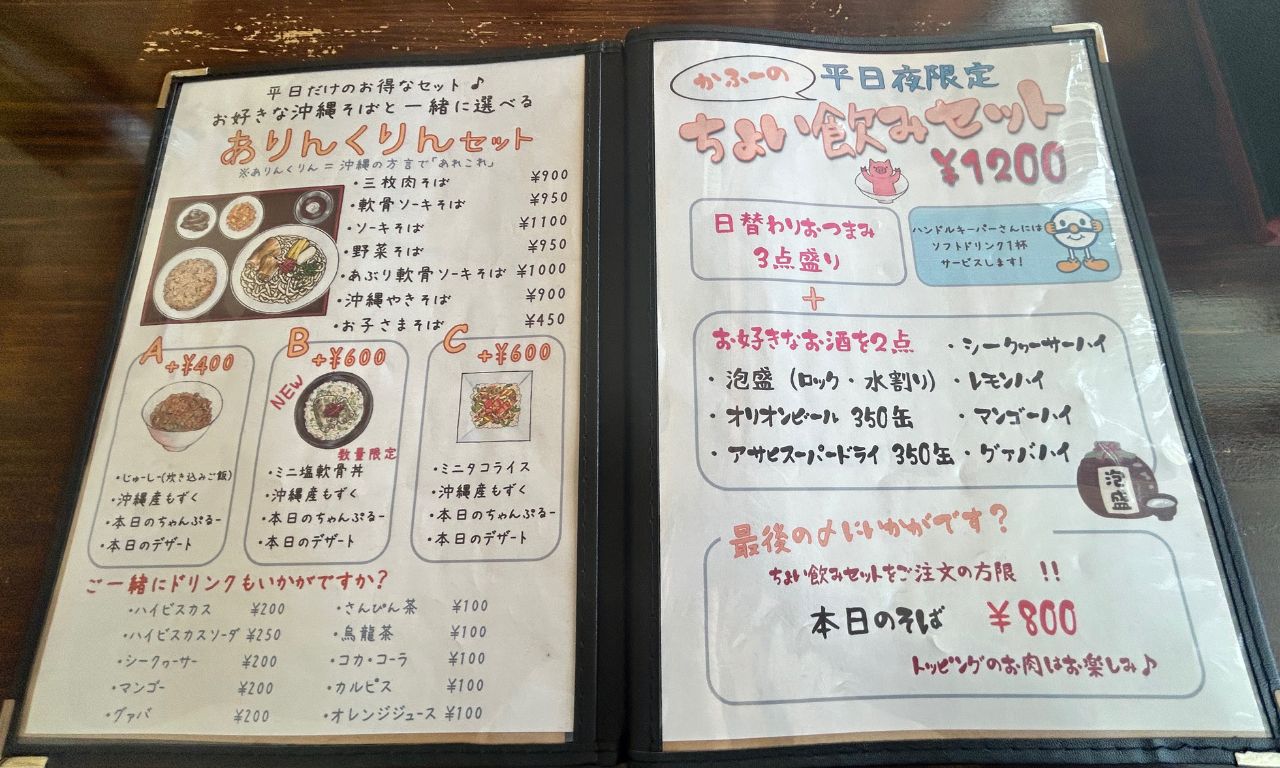 平日だけのお得なセット♪
お好きな沖縄そばと一緒に選べる
ありんくりんセット
※ありんくりん＝沖縄の方言で「あれこれ」
・三枚肉そば ¥900
・軟骨ソーキそば ¥950
・ソーキそば ¥1100
・野菜そば ¥950
・あぶり軟骨ソーキそば ¥1000
・沖縄やきそば ¥900
・お子さまそば ¥450
A +¥400
・じゅーしー(炊き込みご飯)
・沖縄産もずく
・本日のちゃんぷるー
・本日のデザート
B +¥600
NEW
数量限定
・ミニ塩軟骨丼
・沖縄産もずく
・本日のちゃんぷるー
・本日のデザート
C +¥600
・ミニタコライス
・沖縄産もずく
・本日のちゃんぷるー
・本日のデザート
ご一緒にドリンクもいかがですか？
・ハイビスカス ¥200
・ハイビスカスソーダ ¥250
・シークヮーサー ¥200
・マンゴー ¥200
・グァバ ¥200
・さんぴん茶 ¥100
・烏龍茶 ¥100
・コカ・コーラ ¥100
・カルピス ¥100
・オレンジジュース ¥100
かふーの
平日夜限定
ちょい飲みセット
¥1200
日替わりおつまみ
3点盛り
ハンドルキーパーさんには
ソフトドリンク1杯
サービスします！
+
お好きなお酒を2点
・泡盛（ロック・水割り）
・オリオンビール 350缶
・アサヒスーパードライ 350缶
・シークヮーサーハイ
・レモンハイ
・マンゴーハイ
・グァバハイ
泡盛
最後の〆にいかがです？
ちょい飲みセットをご注文の方限 !!
本日のそば ¥800
トッピングのお肉はお楽しみ♪